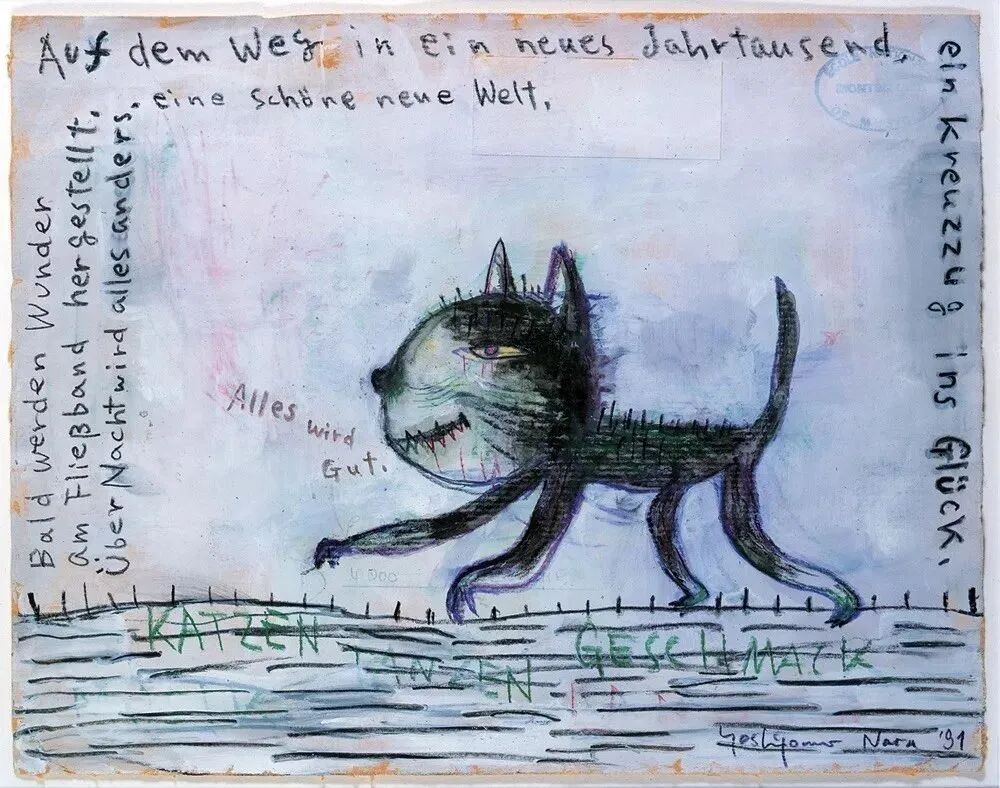 Auf dem Weg in ein neues Jahrtausend,
eine schöne neue Welt,
ein kreuzzug ins Glück,
Bald werden Wunder
am Fließband hergestellt,
Über Nacht wird alles anders.
Alles wird
Gut.
KATZEN GESCHMACK
Nara '91